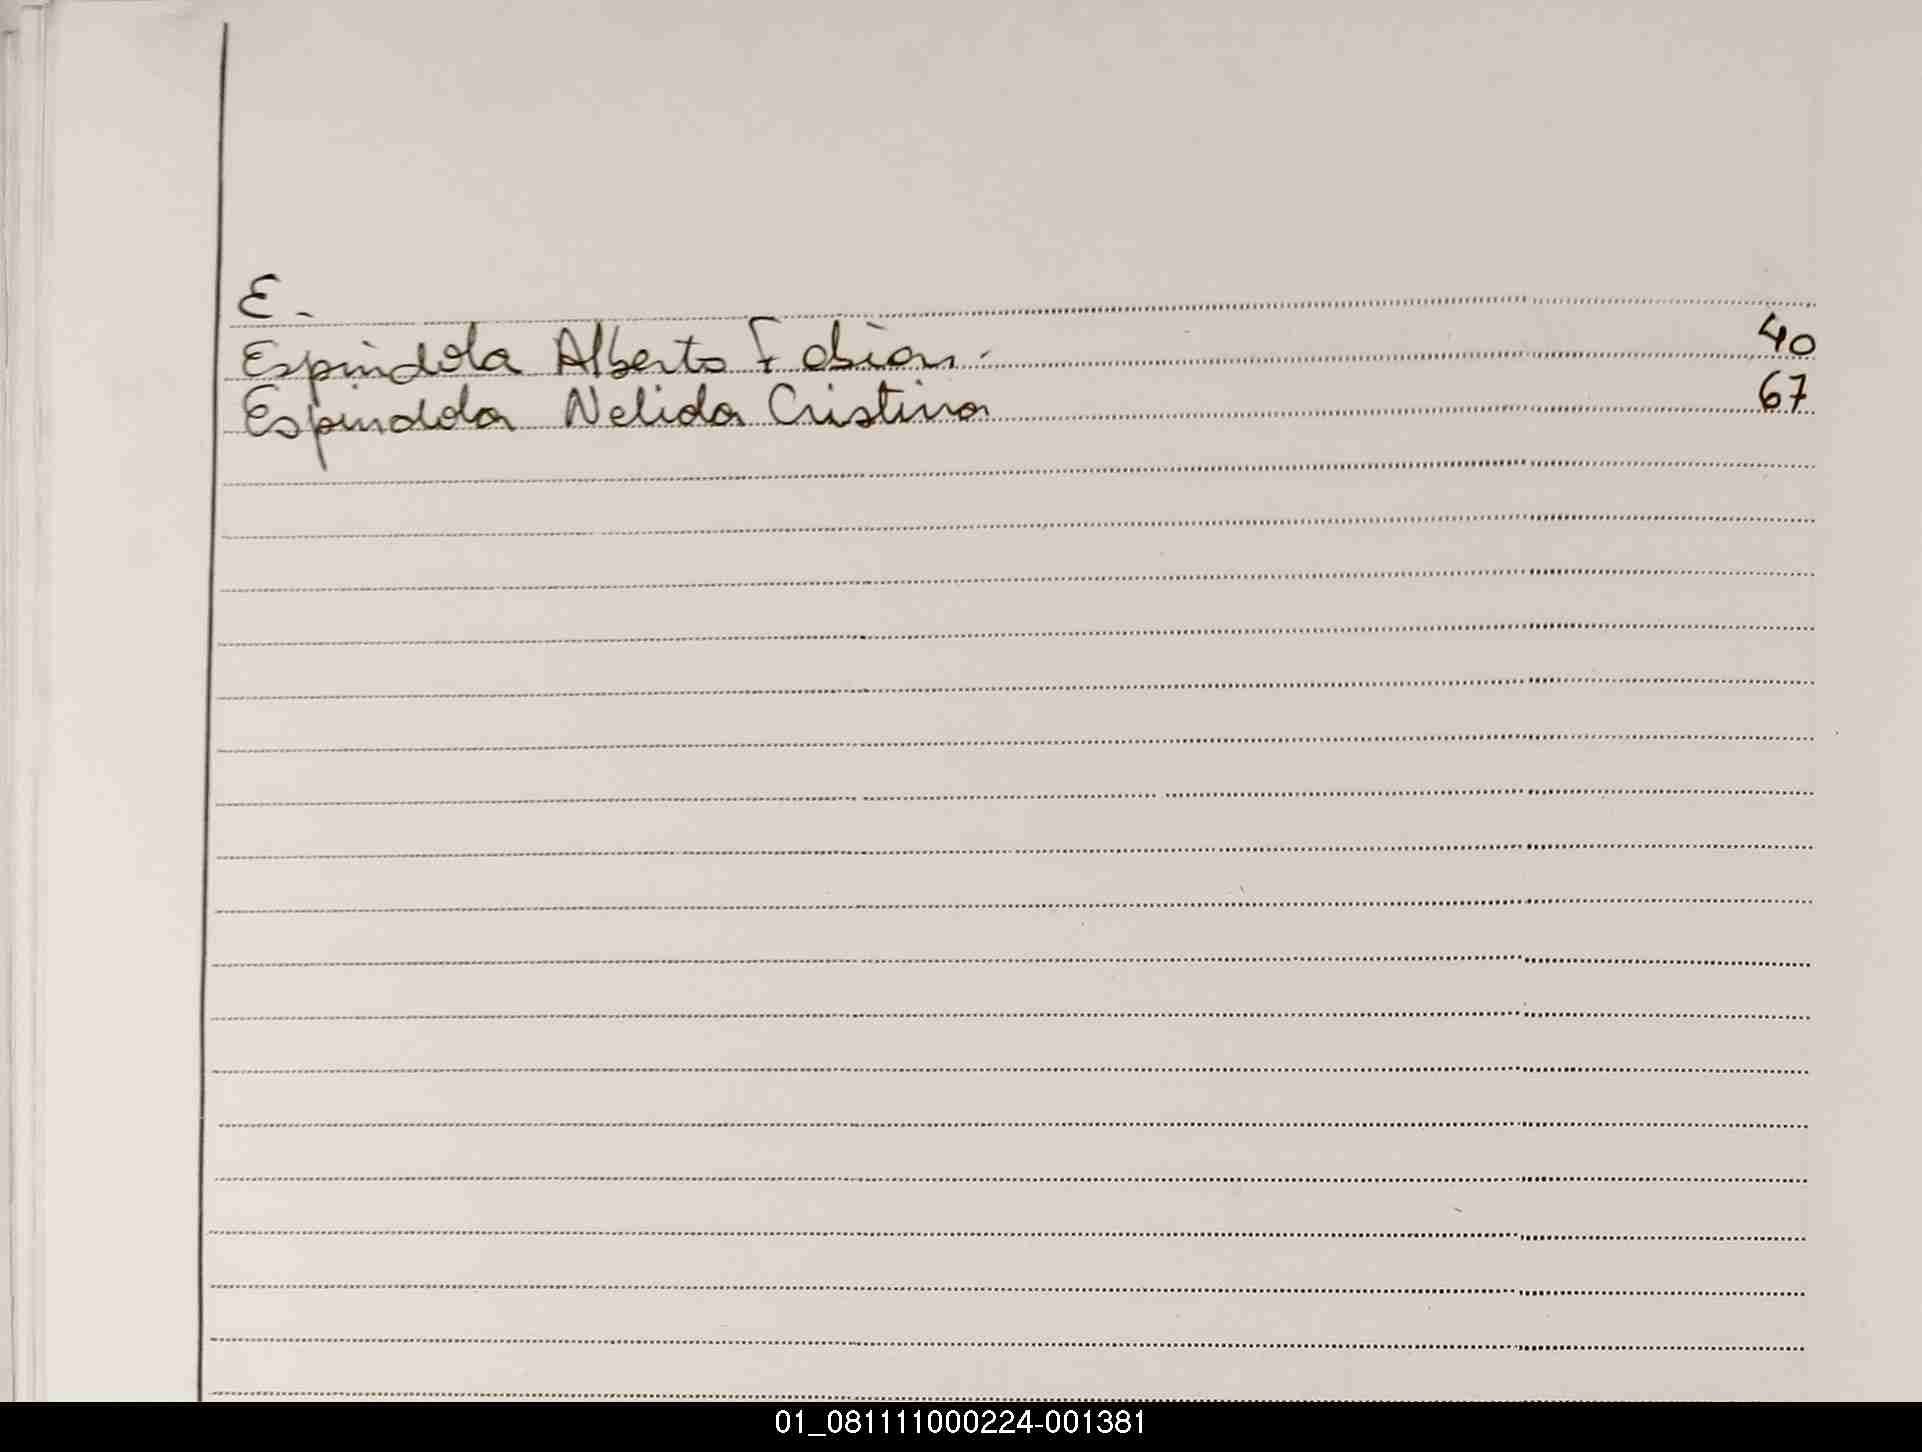 E.-
Espindola Alberto Fabian.- 40
Espindola Nelida Cristina 67
01_081111000224-001381